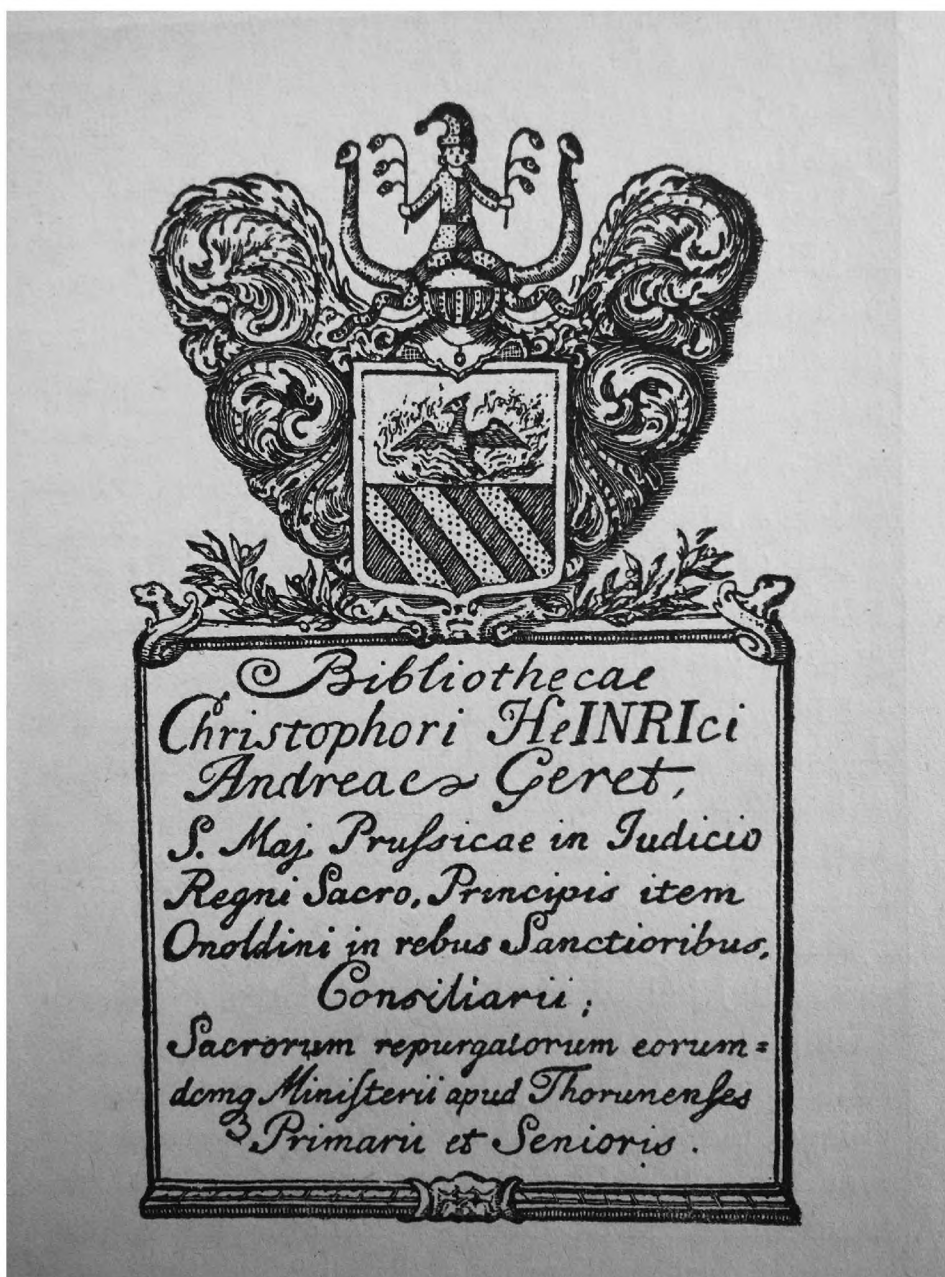 Bibliothecae
Christophori HeINRIci
Andreae Geret,
S. Maj. Prufsicae in Iudicio
Regni Sacro, Principis item
Onoldini in rebus Sanctioribus,
Consiliarii;
Sacrorum repurgatorum eorum=
demq Miniſterii apud Thorunenſes
Primarii et Senioris.